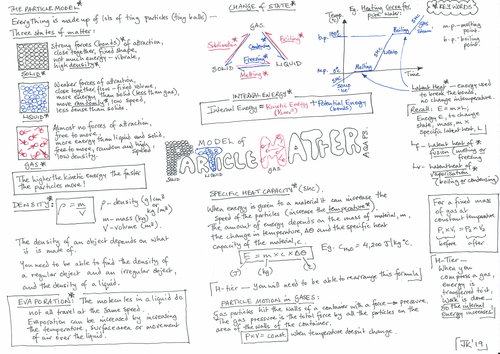 THE PARTICLE MODEL*
Everything is made up of lots of tiny particles (tiny balls)
Three states of matter:
Strong forces (bonds*) of attraction,
close together, fixed shape,
not much energy - vibrate,
high density*
SOLID
Weaker forces of attraction,
close together, flow - fixed volume,
more energy than solid (less than gas),
move randomly* low speed,
less dense than solid.
LIQUID
Almost no forces of attraction,
free to move,
more energy than liquid and solid,
free to move, random and high speed,
low density.
GAS
The higher the kinetic energy the faster
the particles move!
DENSITY*:
ρ = m/V
ρ - density (g/cm³ or kg/m³)
m - mass (kg)
V - volume (m³).
The density of an object depends on what
it is made of.
You need to be able to find the density of
a regular object and an irregular object,
and the density of a liquid.
EVAPORATION: The molecules in a liquid do
not all travel at the same speed.
Evaporation can be increased by increasing
the temperature, surface area or movement
of air over the liquid.
CHANGE of STATE*
GAS
Sublimation*
Condensing
Freezing
Boiling*
SOLID
LIQUID
Melting*
INTERNAL ENERGY*
Internal Energy = Kinetic Energy + Potential Energy
(bonds)
MODEL OF
PARTICLE MATTER
AQA GCSE
SOLID
LIQUID
GAS
SPECIFIC HEAT CAPACITY* (SHC)
When energy is given to a material it can increase the
speed of the particles (increase the temperature*)
The amount of energy depends on the mass of material, m,
the change in temperature, Δθ and the specific heat
capacity of the material, c.
E = m × c × Δθ
(J) (kg)
Eg. CH₂O = 4,200 J/kg°C.
H-tier - You will need to be able to rearrange this formula!
PARTICLE MOTION in GASES:
Gas particles hit the walls of a container with a force → pressure.
The gas pressure is the total force by all the particles on the
area of the walls of the container.
P×V = const. when temperature doesn't change.
Eg. Heating Curve for
Water
Temp.
b.p. 100°C
m.p. 0°C
Boiling
Melting
LIQUID
Time
* KEYWORDS
m.p. - melting point
b.p. - boiling point
Latent Heat* - Energy used
to break the bonds,
no change in temperature.
Recall: E = m × L
Energy, E, to change
state, mass, m ×
Specific latent heat, L
Lf - latent heat of
fusion (melting or
freezing)
Lv - latent heat of
vaporisation*
(boiling or condensing)
For a fixed
mass of gas
at constant
temperature
P₁×V₁ = P₂×V₂
before after
H-Tier -
When you
compress a gas,
energy is
transferred to it,
work is done -
so the internal
energy increases!
JR '19